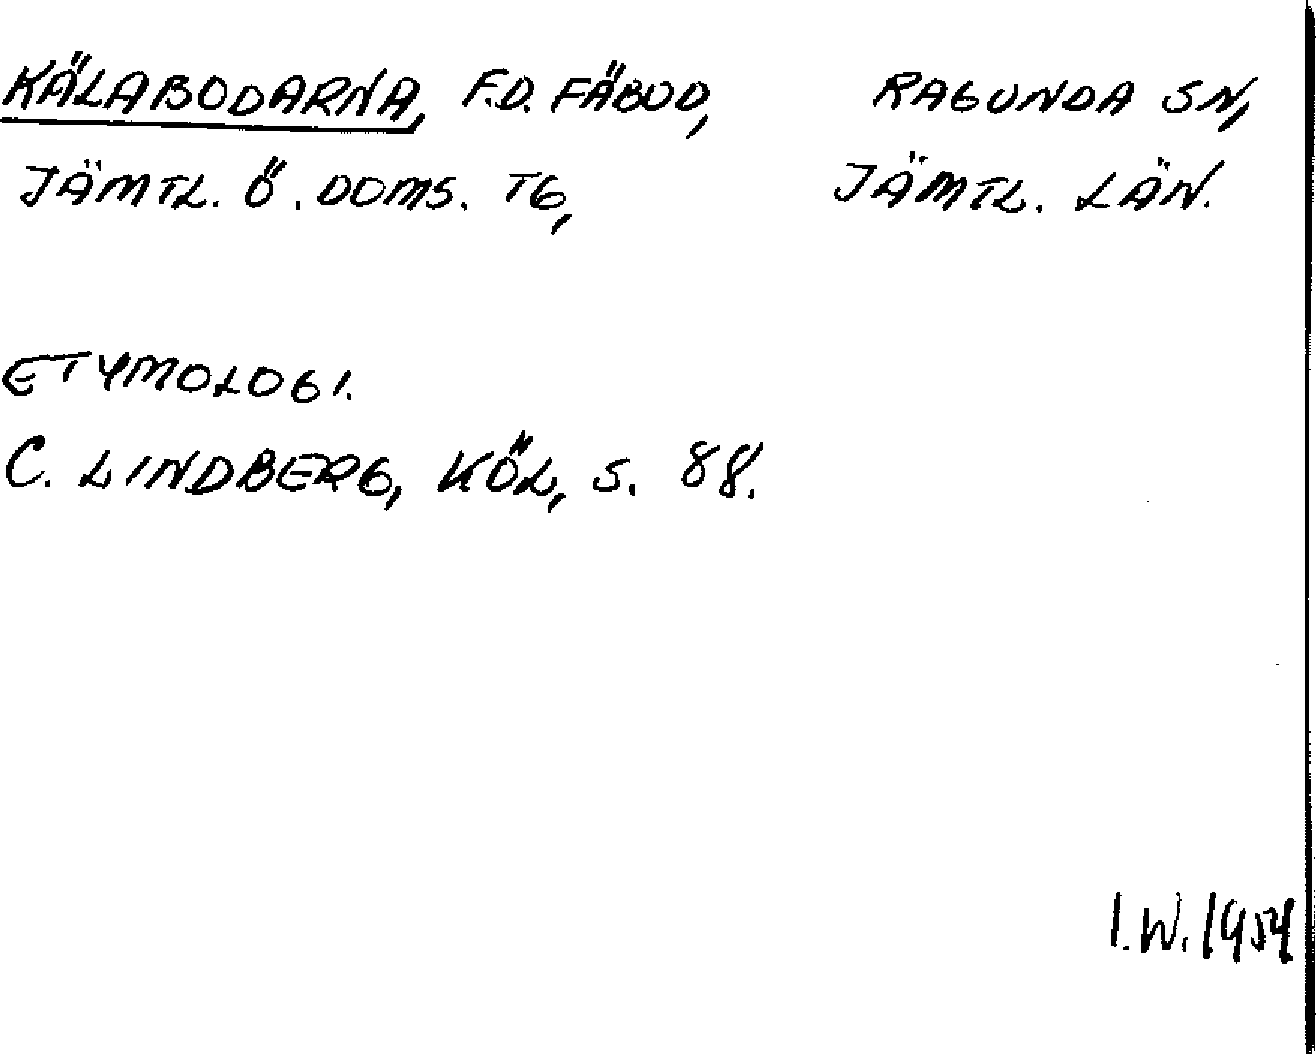 KÄLABODARNA, F.D. FÄBOD, RAGUNDA SN,
JÄMTL. Ö. DOMS. TG, JÄMTL. LÄN.
ETYMOLOGI.
C. LINDBERG, KÖL, S. 88.
I.W. 1954